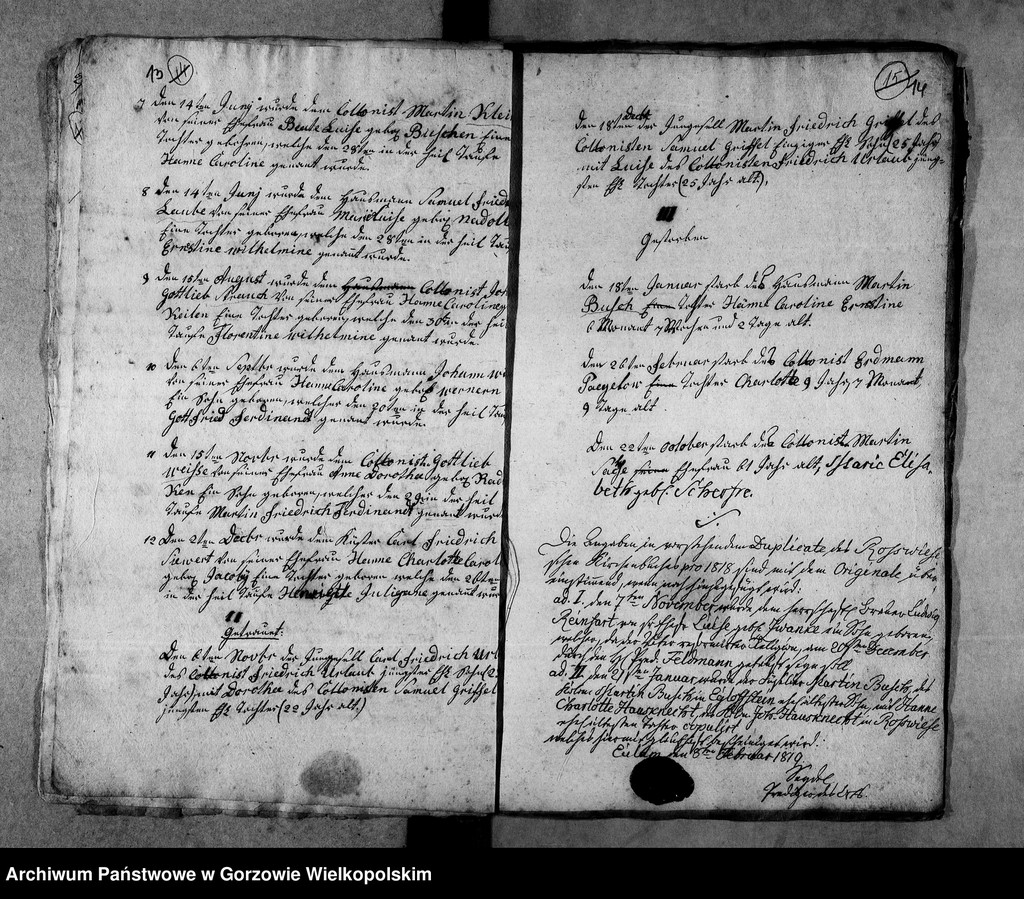 13 14
7 den 14ten Juny wurde dem Collonist Martin Klei
von seiner Ehefrau Beate Luise geb. Buschen Eine
Tochter gebohren, welche den 28ten in der heil Taufe
Hanne Caroline genant wurde.
8 den 14ten Juny wurde dem Hausmann Samuel Fried
Laube von seiner Ehefrau Luise geb.
Eine Tochter gebohren, welche den 28ten in der heil Tau
Ernstine Wilhelmine genant wurde.
9 den 15ten August wurde dem Hausmann Collonist Joh
Gottlieb Strauch von seiner Ehefrau Hanne Caroline
Keilen Eine Tochter gebohren, welche den 30ten in der hei
Taufe Florentine Wilhelmine genant wurde.
10 den 6ten Septbr wurde dem Hausmann Johann
von seiner Ehefrau Hanne Caroline geb. Wernern
Ein Sohn gebohren, welcher den 20ten in der heil Tau
Gottfried Ferdinandt genant wurde.
11 den 15ten Novbr wurde dem Collonist Gottlieb
Weisse von seiner Ehefrau Anne Dorothea geb. Rad
Ein Sohn gebohren, welcher den 29 in der heil
Taufe Martin Friedrich Ferdinandt genant wurd
12 Den 2ten Decbr wurde dem Küster Carl Friedrich
Siewert von seiner Ehefrau Hanne Charlotte Carol
geb. Jacoby Eine Tochter gebohren welche den 26ten
in der heil Taufe Henriette Juliane genant wur
II
Getrauet:
Den 6ten Novbr der Junggesell Carl Friedrich Url
des Collonist Friedrich Urlaub jüngster Ehl Sohn (2
Jahr) mit Dorothea des Collonisten Samuel Griffel
jüngsten Ehl Tochter (22 Jahr alt.)
15 14
den 18ten Decbr der Junggesell Martin Friedrich Griffel des
Collonisten Samuel Griffel Einziger Ehl Sohn (25 Jahr
mit Luise des Collonisten Friedrich Urlaub jüng-
sten Ehl Tochter (25 Jahr alt.),
III
Gestorben
den 18ten Januar starb des Hausmann Martin
Busch Tochter Hanne Caroline Ernstine
6 Monant 2 Wochen und 2 Tage alt.
den 26ten Februar starb des Collonist Erdmann
Paegelow Tochter Charlotte 9 Jahr, 7 Monant,
9 Tage alt.
Den 22ten October starb des Collonist Martin
Ehefrau 61 Jahr alt, Marie Elisa
beth geb. Scherfre.
Die Angaben in vorstehendem Duplicate des Roswiese
schen Kirchenbuches pro 1818 sind mit dem Originale über
einstimmend, wozu noch hinzugefügt wird:
ad. I. den 7ten November wurde dem herrschaftl Brauer Ludwig
Reinfart von sr Ehefr Luise geb. Zwanke ein Sohn geboren,
welcher, da der Vater reformirter Religion, am 20sten December
durch den H. Pred. Feldmann getauft seyn soll
ad. II. den 21sten Januar wurde der Martin Busch, des
Martin Busch in Egloffstein eheleibl. Sohn, mit Hanne
Charlotte Hausknecht, des Joh. Hausknecht in Roswiese
eheleiblichen Tochter copulirt
welches hiermit glaubhaft bescheiniget wird:
Eulam den 8ten Februar 1819
Seydel
Prediger des Orts.
Archiwum Państwowe w Gorzowie Wielkopolskim